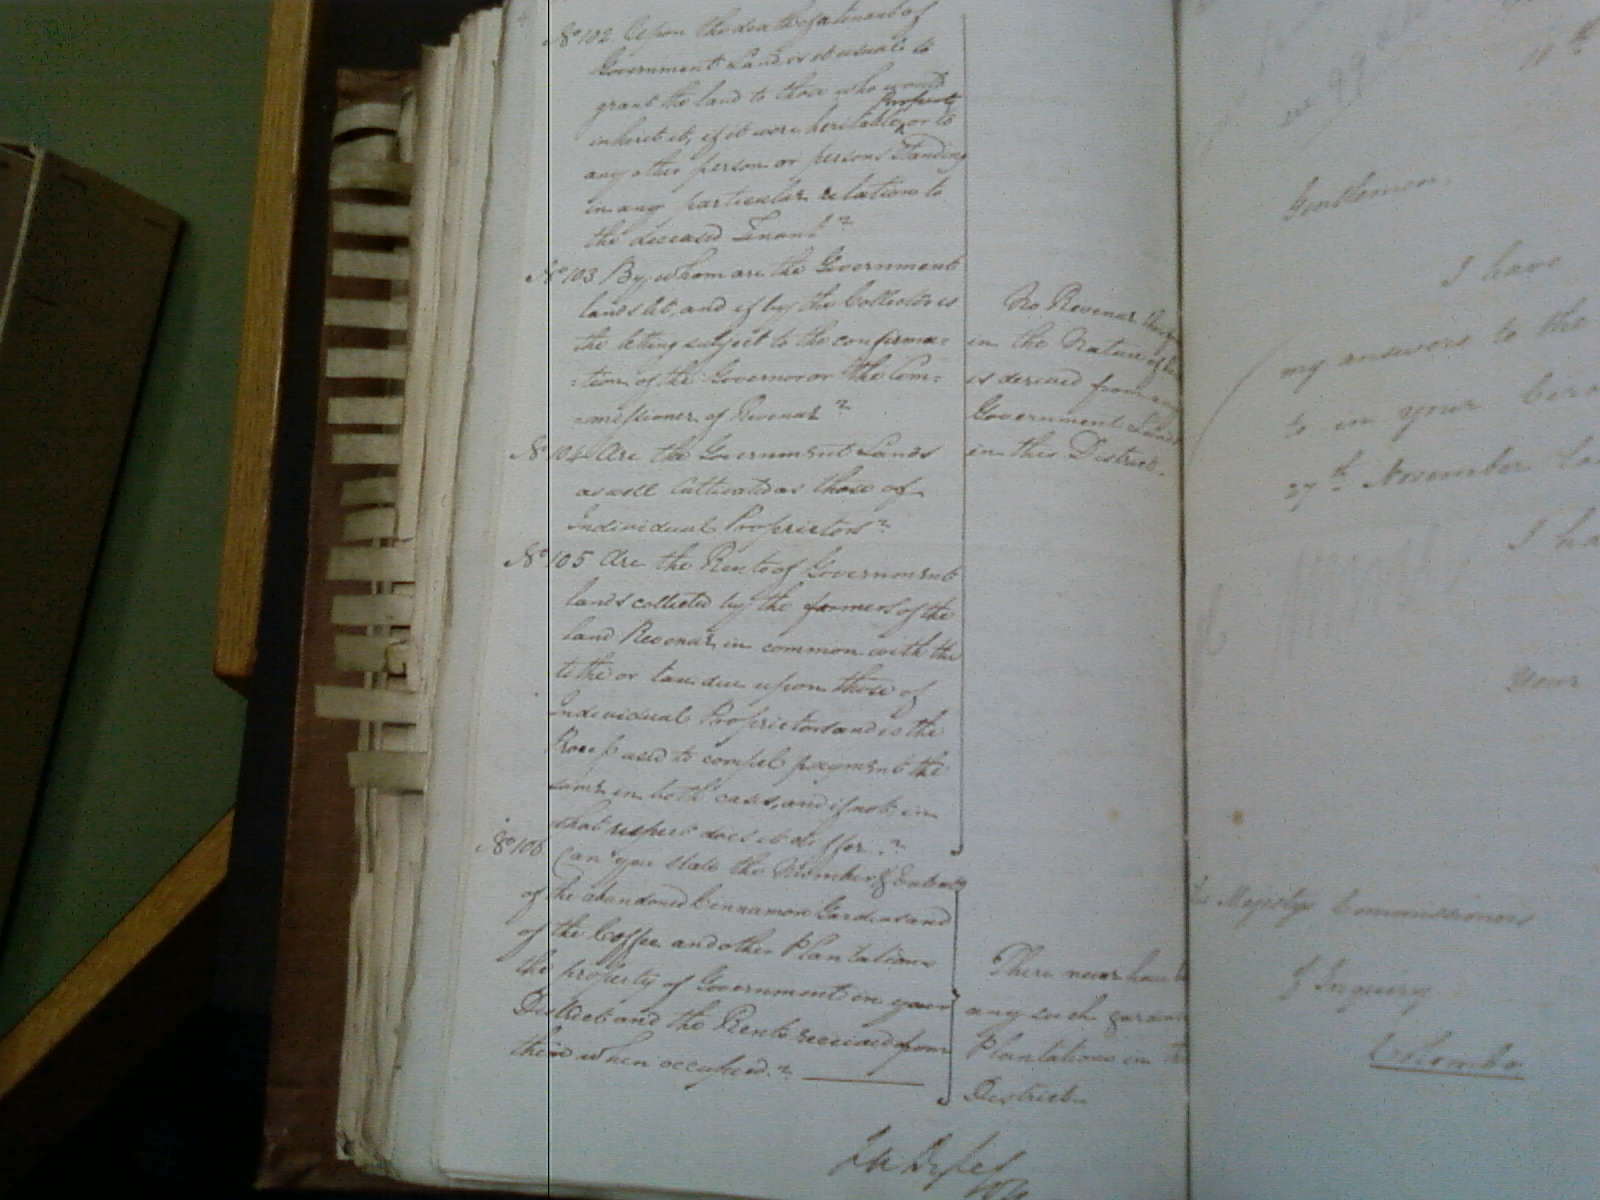 No 102 Upon the death of a tenant of
Government Land is it usual to
grant the land to those who would
inherit it, if it were heritable property or to
any other person or persons standing
in any particular relation to
the deceased Tenant?
No 103 By whom are the Government
lands let, and if by the Collector is
the letting subject to the confirma=
=tion of the Governor or the Com=
=missioner of Revenue?
No 104 Are the Government Lands
as well cultivated as those of
Individual Proprietors?
No 105 Are the Rents of Government
lands collected by the farmers of the
land Revenue in common with the
tithe or tax due upon those of
Individual Proprietors and is the
Process used to compel payment the
same in both cases, and if not, in
what respect does it differ?
No 106 Can you state the Number & Extent
of the abandoned Cinnamon Gardens and
of the Coffee and other Plantations
the property of Government in your
District and the Rents received from
them when occupied?
No Revenue
in the Nature of
is derived from any
Government Lands
in this District.
There never have
any such gardens
Plantations in
District
Gentlemen,
I have
my answers to the
to in your
27th November
I ha
Your
His Majestys Commissioners
of Inquiry
Colombo